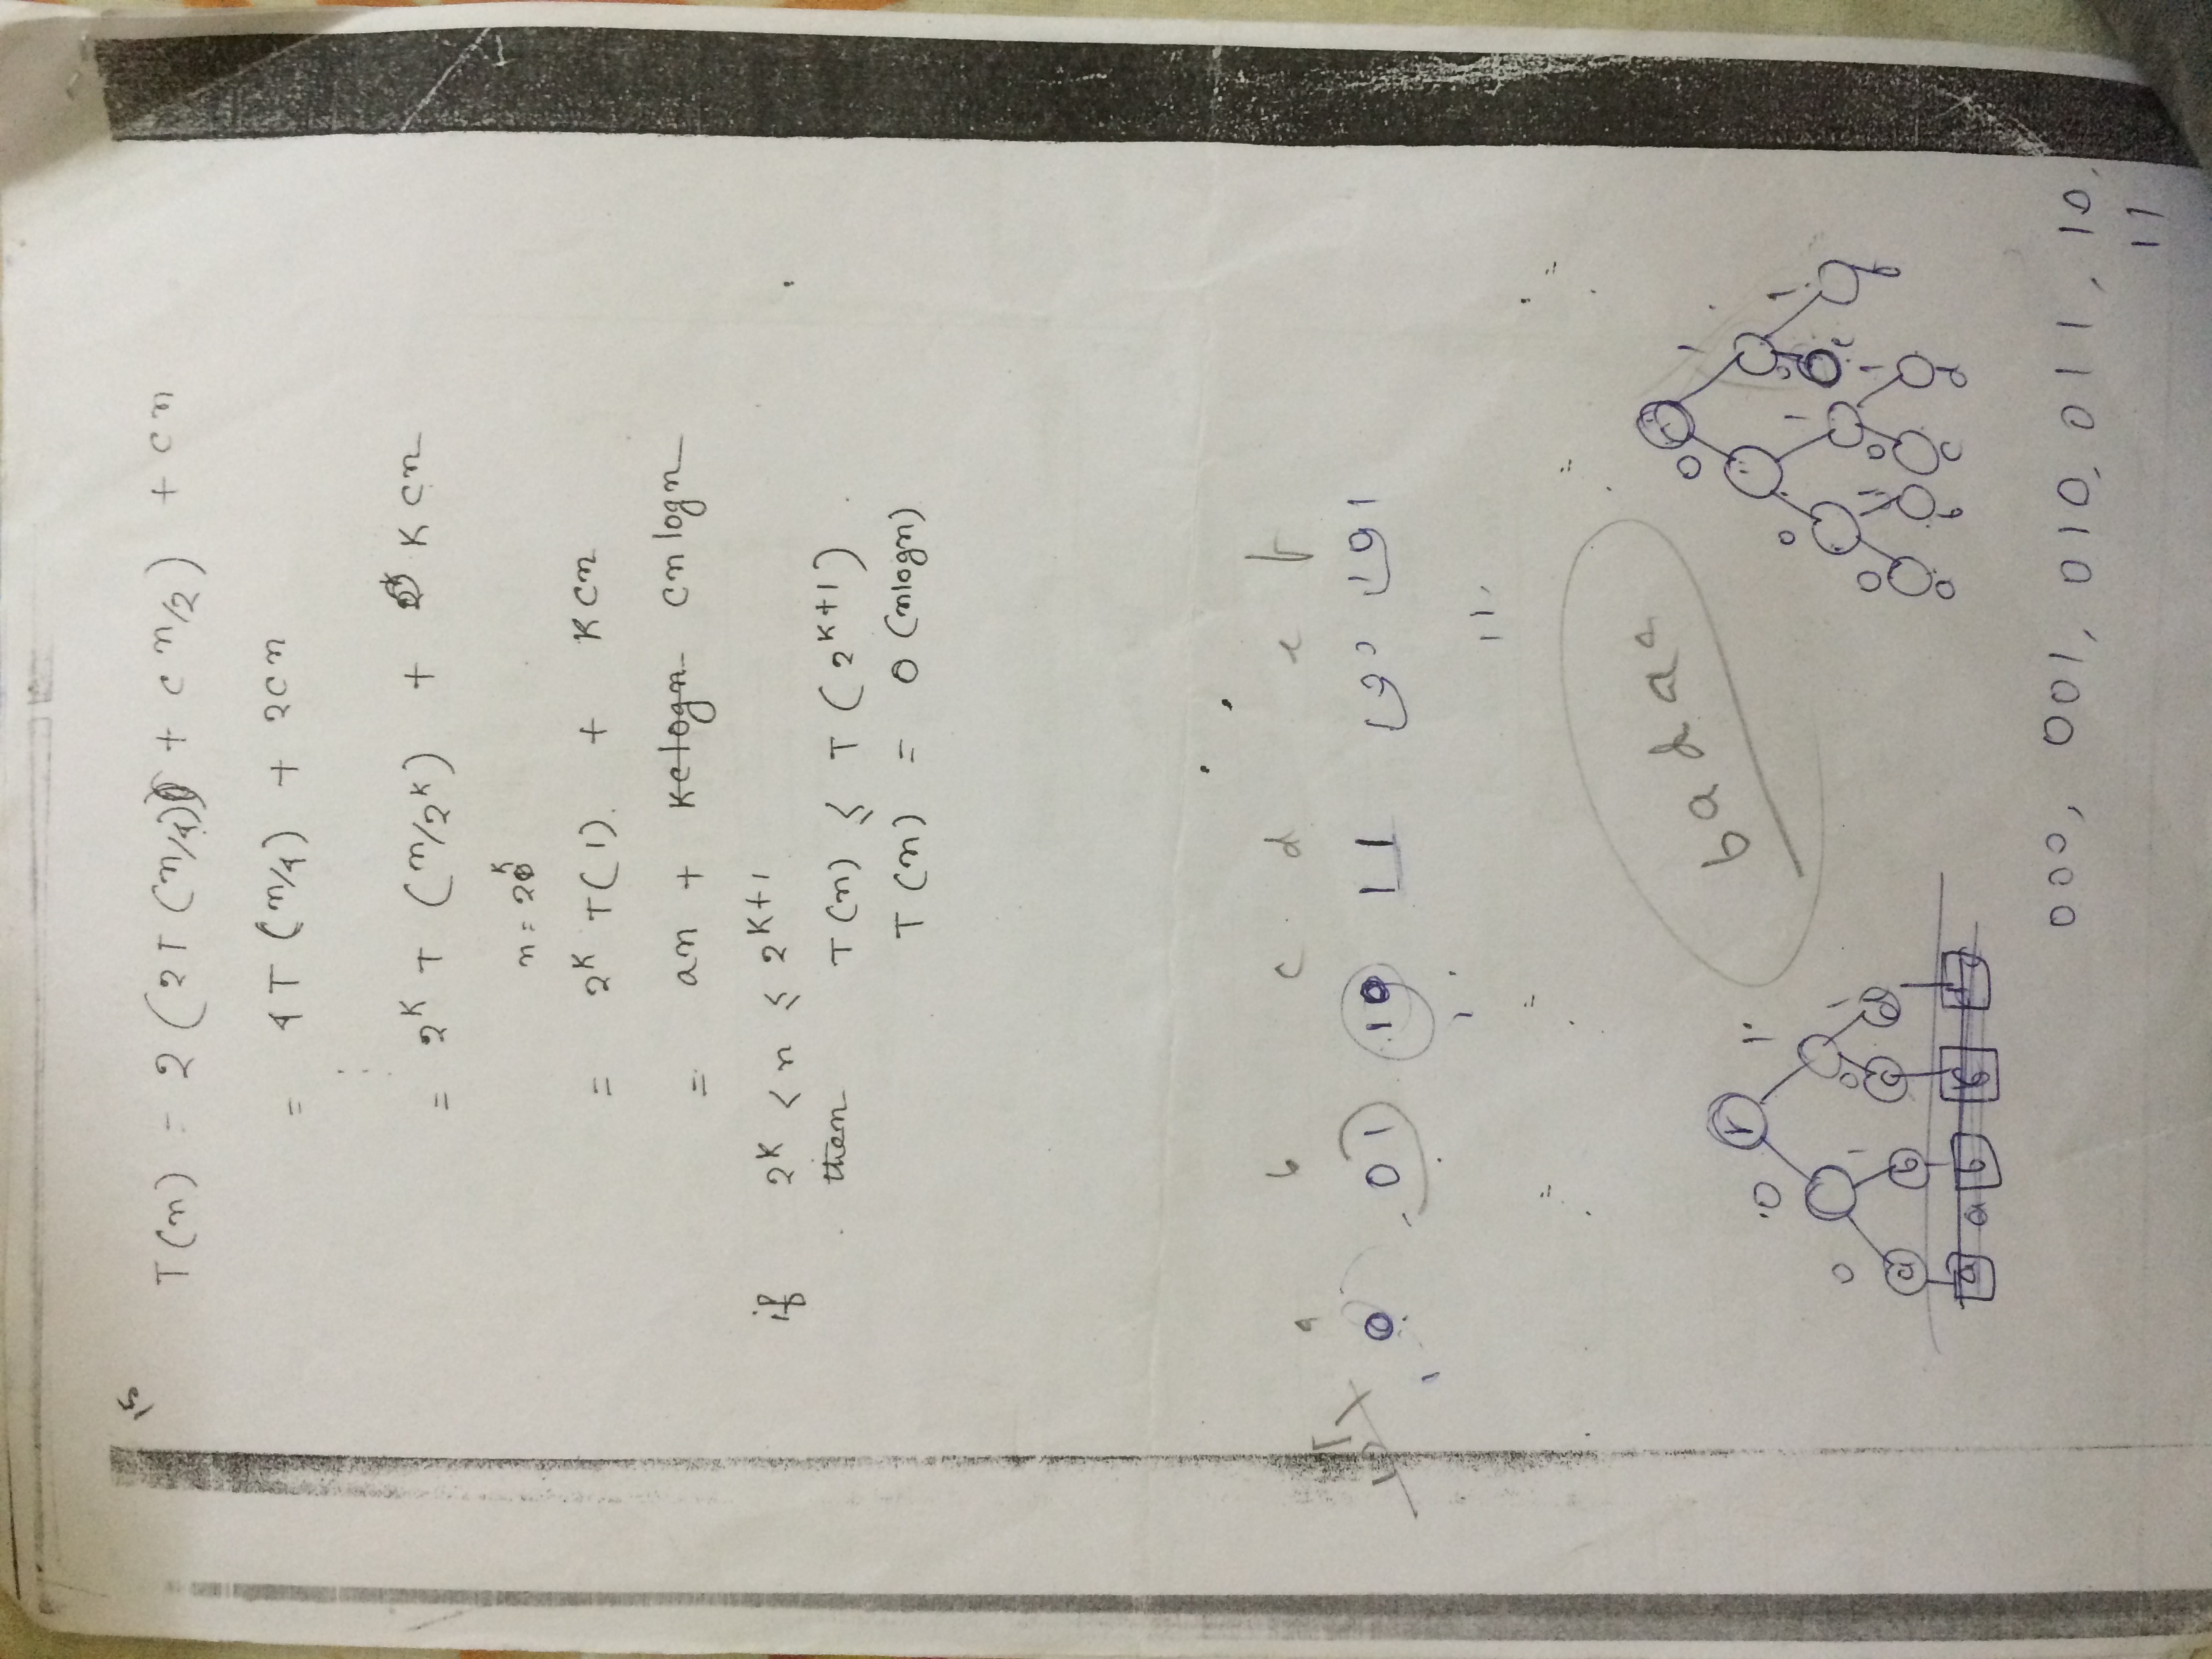 15
T(n) = 2 (2T (n/4) + c n/2) + cn
= 4T (n/4) + 2cn
⋮
= 2^K T (n/2^K) + K cn
n = 2^K
= 2^K T(1) + K cn
= an + Kclogn cn logn
if 2^K < n ≤ 2^K+1
then T(n) ≤ T(2^K+1)
T(n) = O(nlogn)
a b c d e f
0 01 10 11 100 101
11
badac
r
0 1
0 1 0 1
a b c d
a a b b
0 1
0 1 0 1
0 1 0 1
a b c d
000, 001, 010, 011, 10,
11